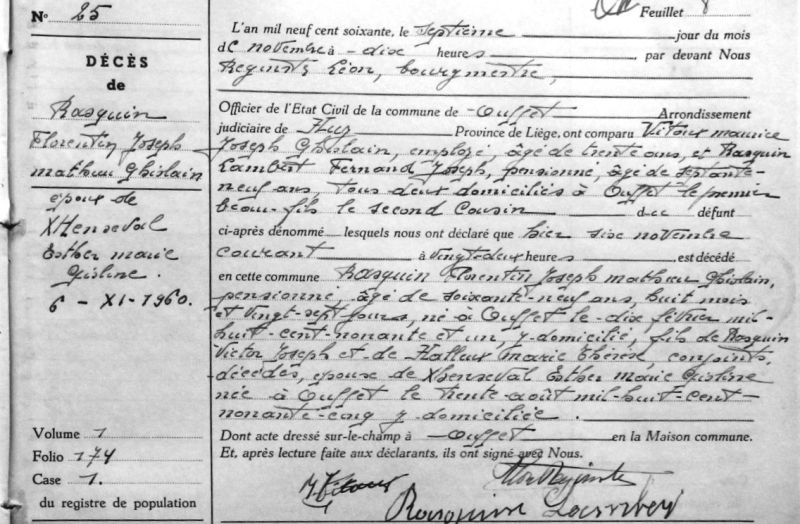 N° 25
DÉCÈS
de
Rasquin
Florentin Joseph
mathieu Ghislain
epoux de
XHenseval
Esther marie
Gisline.
6 - XI - 1960.
Volume 1
Folio 174
Case 1.
du registre de population
Feuillet
L'an mil neuf cent soixante, le septième jour du mois
de novembre à dix heures, par devant Nous
Reginster Léon, bourgmestre,
Officier de l'Etat Civil de la commune de Ouffet Arrondissement
judiciaire de Huy Province de Liège, ont comparu Vitoux maurice
Joseph Ghislain, employé, âgé de trente ans, et Rasquin
Lambert Fernand Joseph, pensionné, âgé de septante-
neuf ans, tous deux domiciliés à Ouffet le premier
beau-fils le second cousin du défunt
ci-après dénommé lesquels nous ont déclaré que hier six novembre
courant à vingt-deux heures est décédé
en cette commune Rasquin Florentin Joseph mathieu Ghislain,
pensionné, âgé de soixante-neuf ans, huit mois
et vingt-sept jours, né à Ouffet le dix février mil-
huit-cent-nonante et un, y domicilié, fils de Rasquin
Victor Joseph et de Halleux Marie Thérèse conjoints,
décédés, epoux de Xhenseval Esther marie Gisline
née à Ouffet le trente août mil-huit-cent-
nonante-cinq y domiciliée.
Dont acte dressé sur-le-champ à Ouffet en la Maison commune.
Et, après lecture faite aux déclarants, ils ont signé avec Nous.
Rasquin Lambert